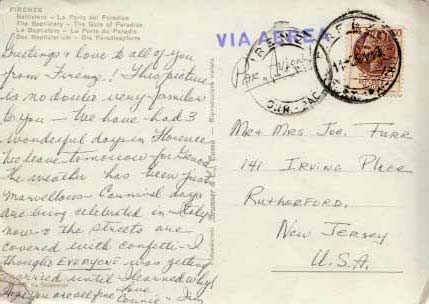 FIRENZE
Battistero - La Porta del Paradiso
Baptistery - The Gate of Paradise
La Baptistère - La Porte du Paradis
Das Baptisterium - Die Paradiespforte
VIA AEREA
FIRENZE
Par Avion
Greetings & love to all of you
from Firenze! This picture
is no doubt very familiar
to you - We have had 3
wonderful days in Florence
We leave tomorrow for
The weather has been just
marvellous - Carnival days
are being celebrated in Italy
now & the streets are
covered with confetti - I
thought EVERYONE was getting
married until I learned why!
Hope you are all fine Love
Connie & Jim
Mr & Mrs Joe. Furr
141 Irving Place
Rutherford,
New Jersey
U.S.A.